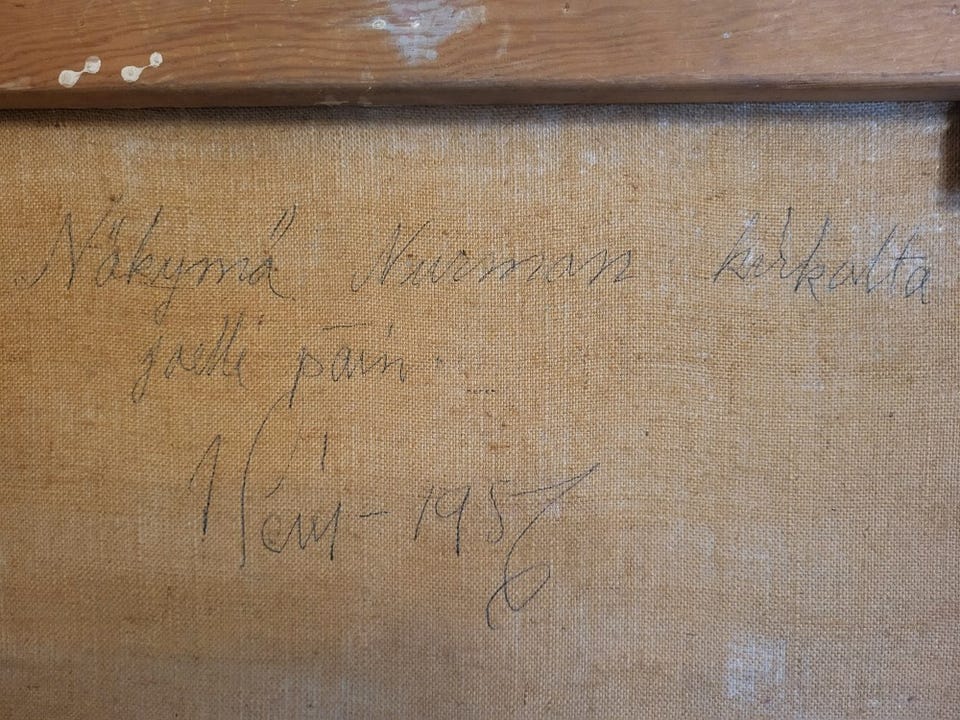 Näkymä Nurman kirkolta
joelle päin
1957